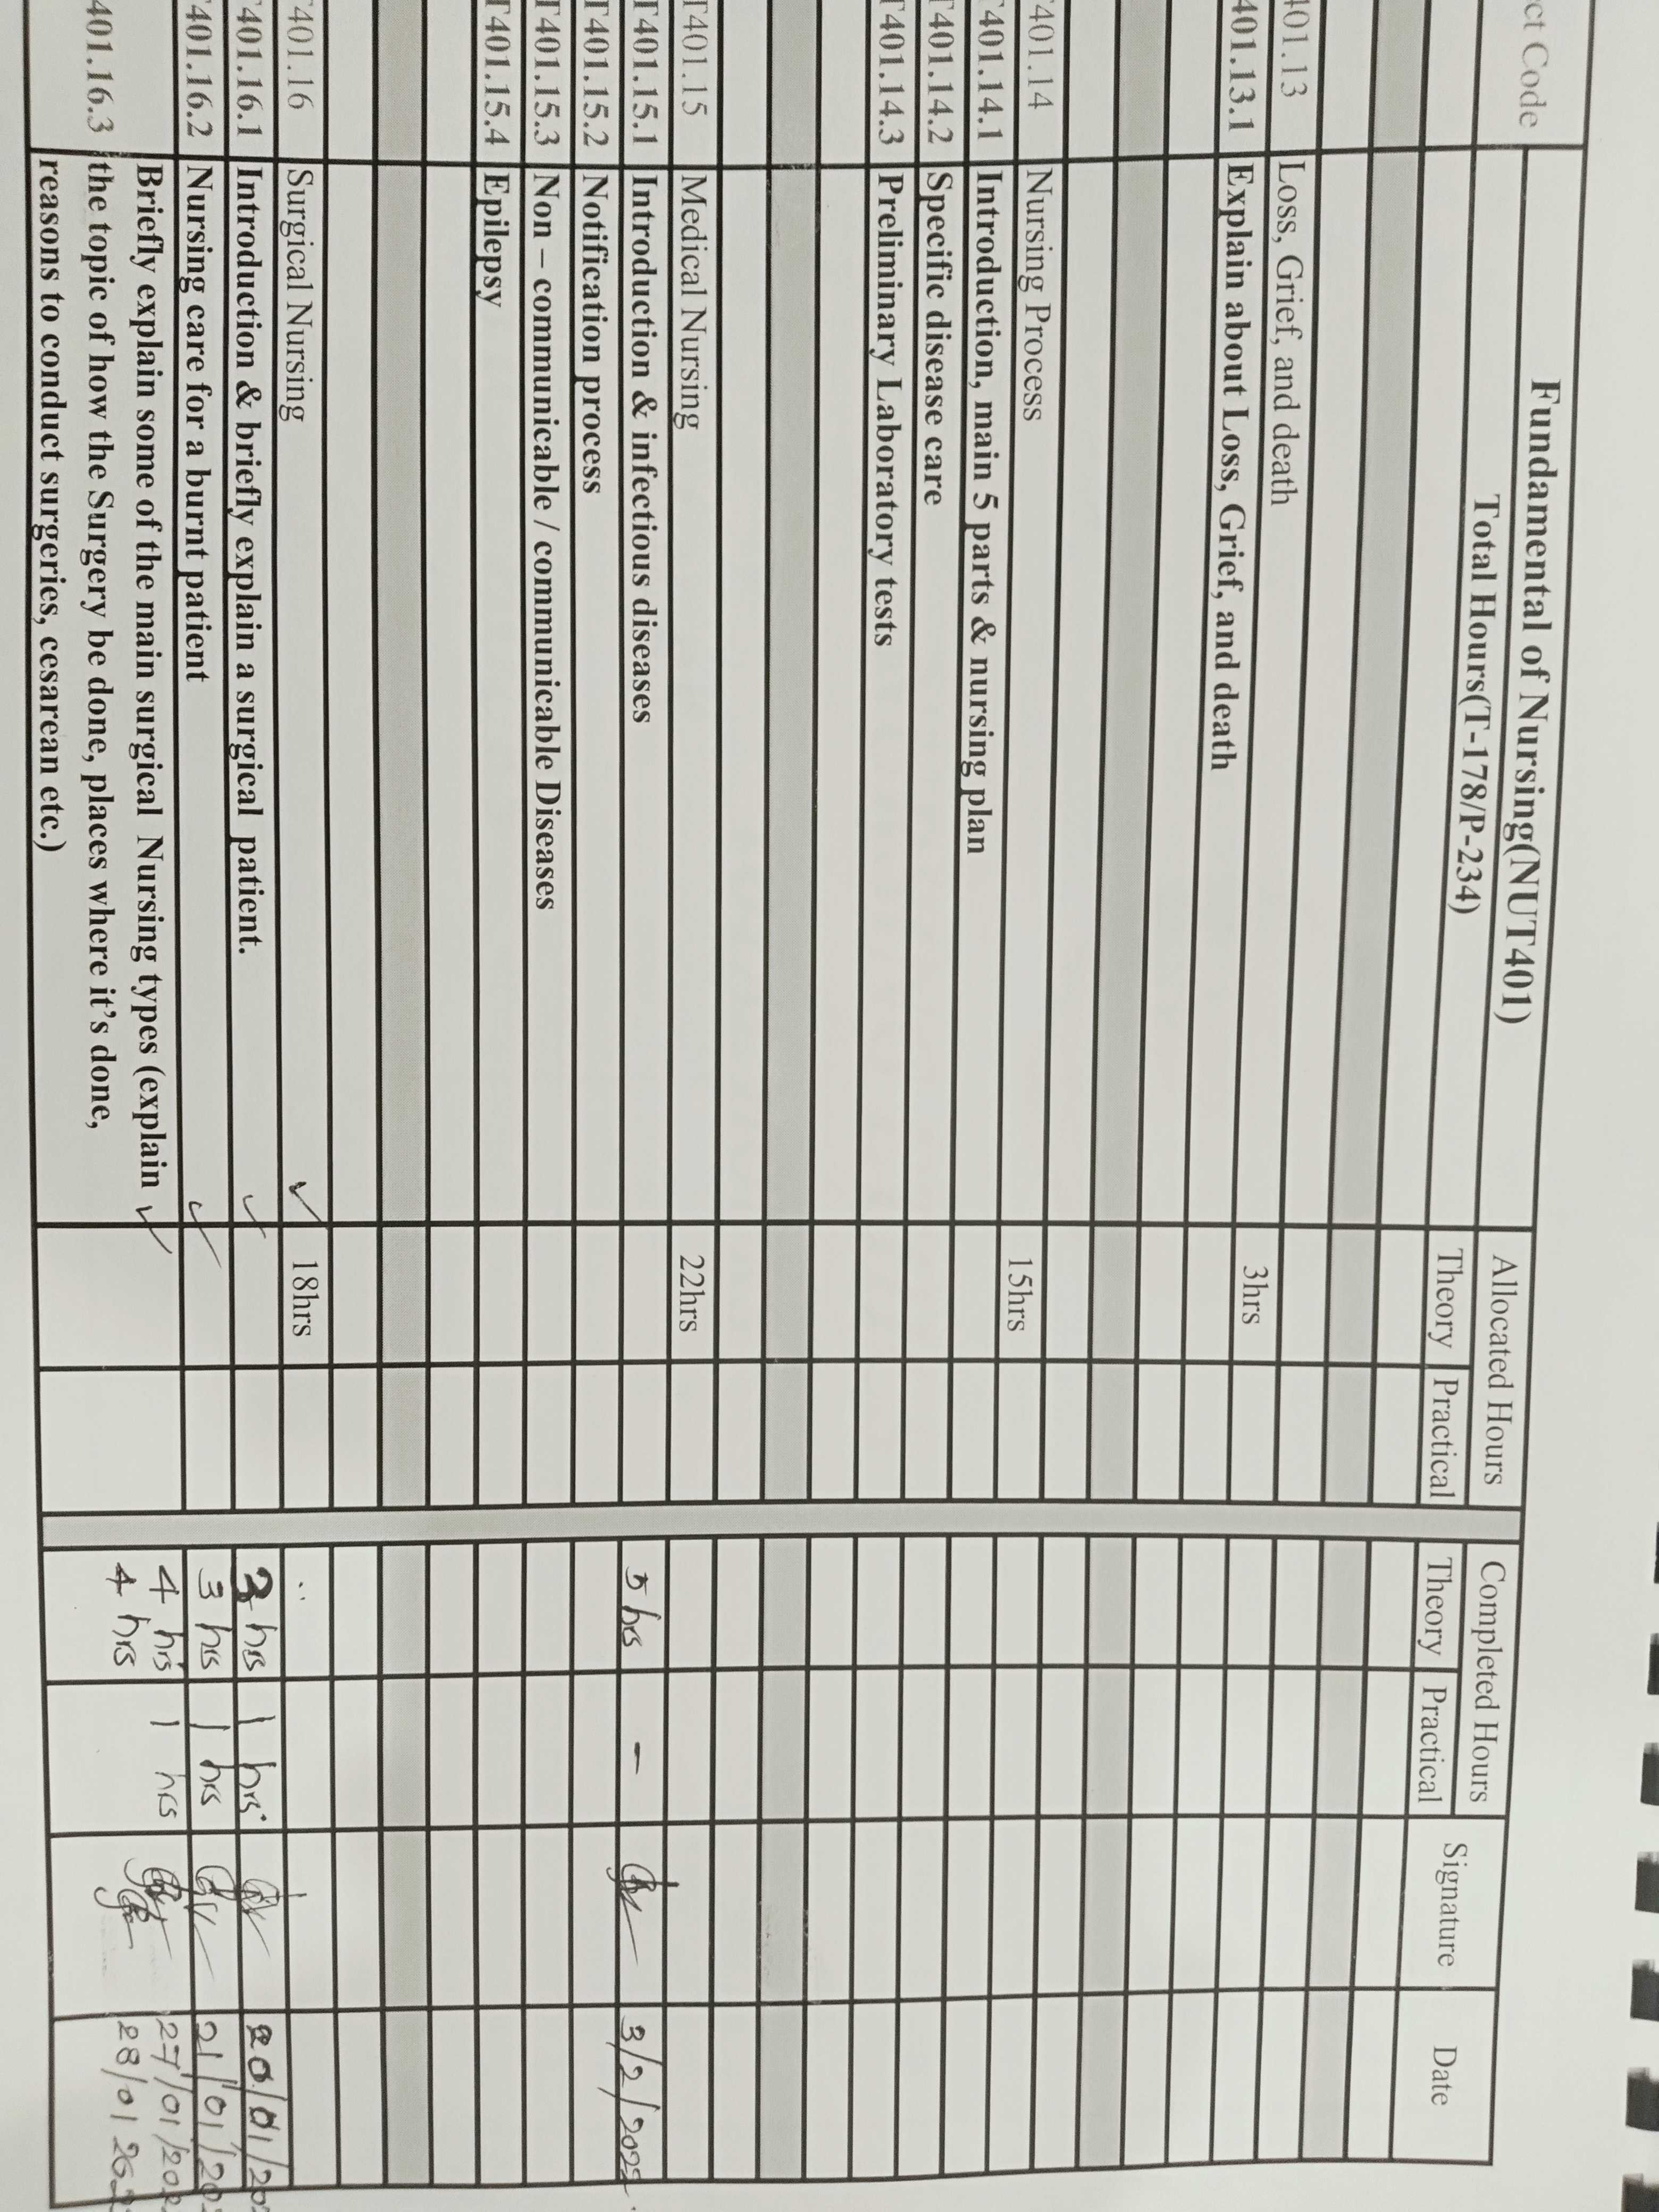 ct Code
Fundamental of Nursing(NUT401)
Total Hours(T-178/P-234)
Allocated Hours
Completed Hours
Signature
Date
Theory
Practical
Theory
Practical
401.13 Loss, Grief, and death
401.13.1 Explain about Loss, Grief, and death 3hrs
401.14 Nursing Process 15hrs
401.14.1 Introduction, main 5 parts & nursing plan
T401.14.2 Specific disease care
T401.14.3 Preliminary Laboratory tests
T401.15 Medical Nursing 22hrs
T401.15.1 Introduction & infectious diseases 5 hrs – 3/2/202
T401.15.2 Notification process
T401.15.3 Non – communicable / communicable Diseases
T401.15.4 Epilepsy
401.16 Surgical Nursing ✓ 18hrs
401.16.1 Introduction & briefly explain a surgical patient. ✓ 3 hrs 1 hrs 20/01/20
401.16.2 Nursing care for a burnt patient ✓ 3 hrs 1 hrs 21/01/20
Briefly explain some of the main surgical Nursing types (explain ✓ 4 hrs 1 hrs 27/01/202
401.16.3 the topic of how the Surgery be done, places where it's done, 4 hrs 28/01
reasons to conduct surgeries, cesarean etc.)